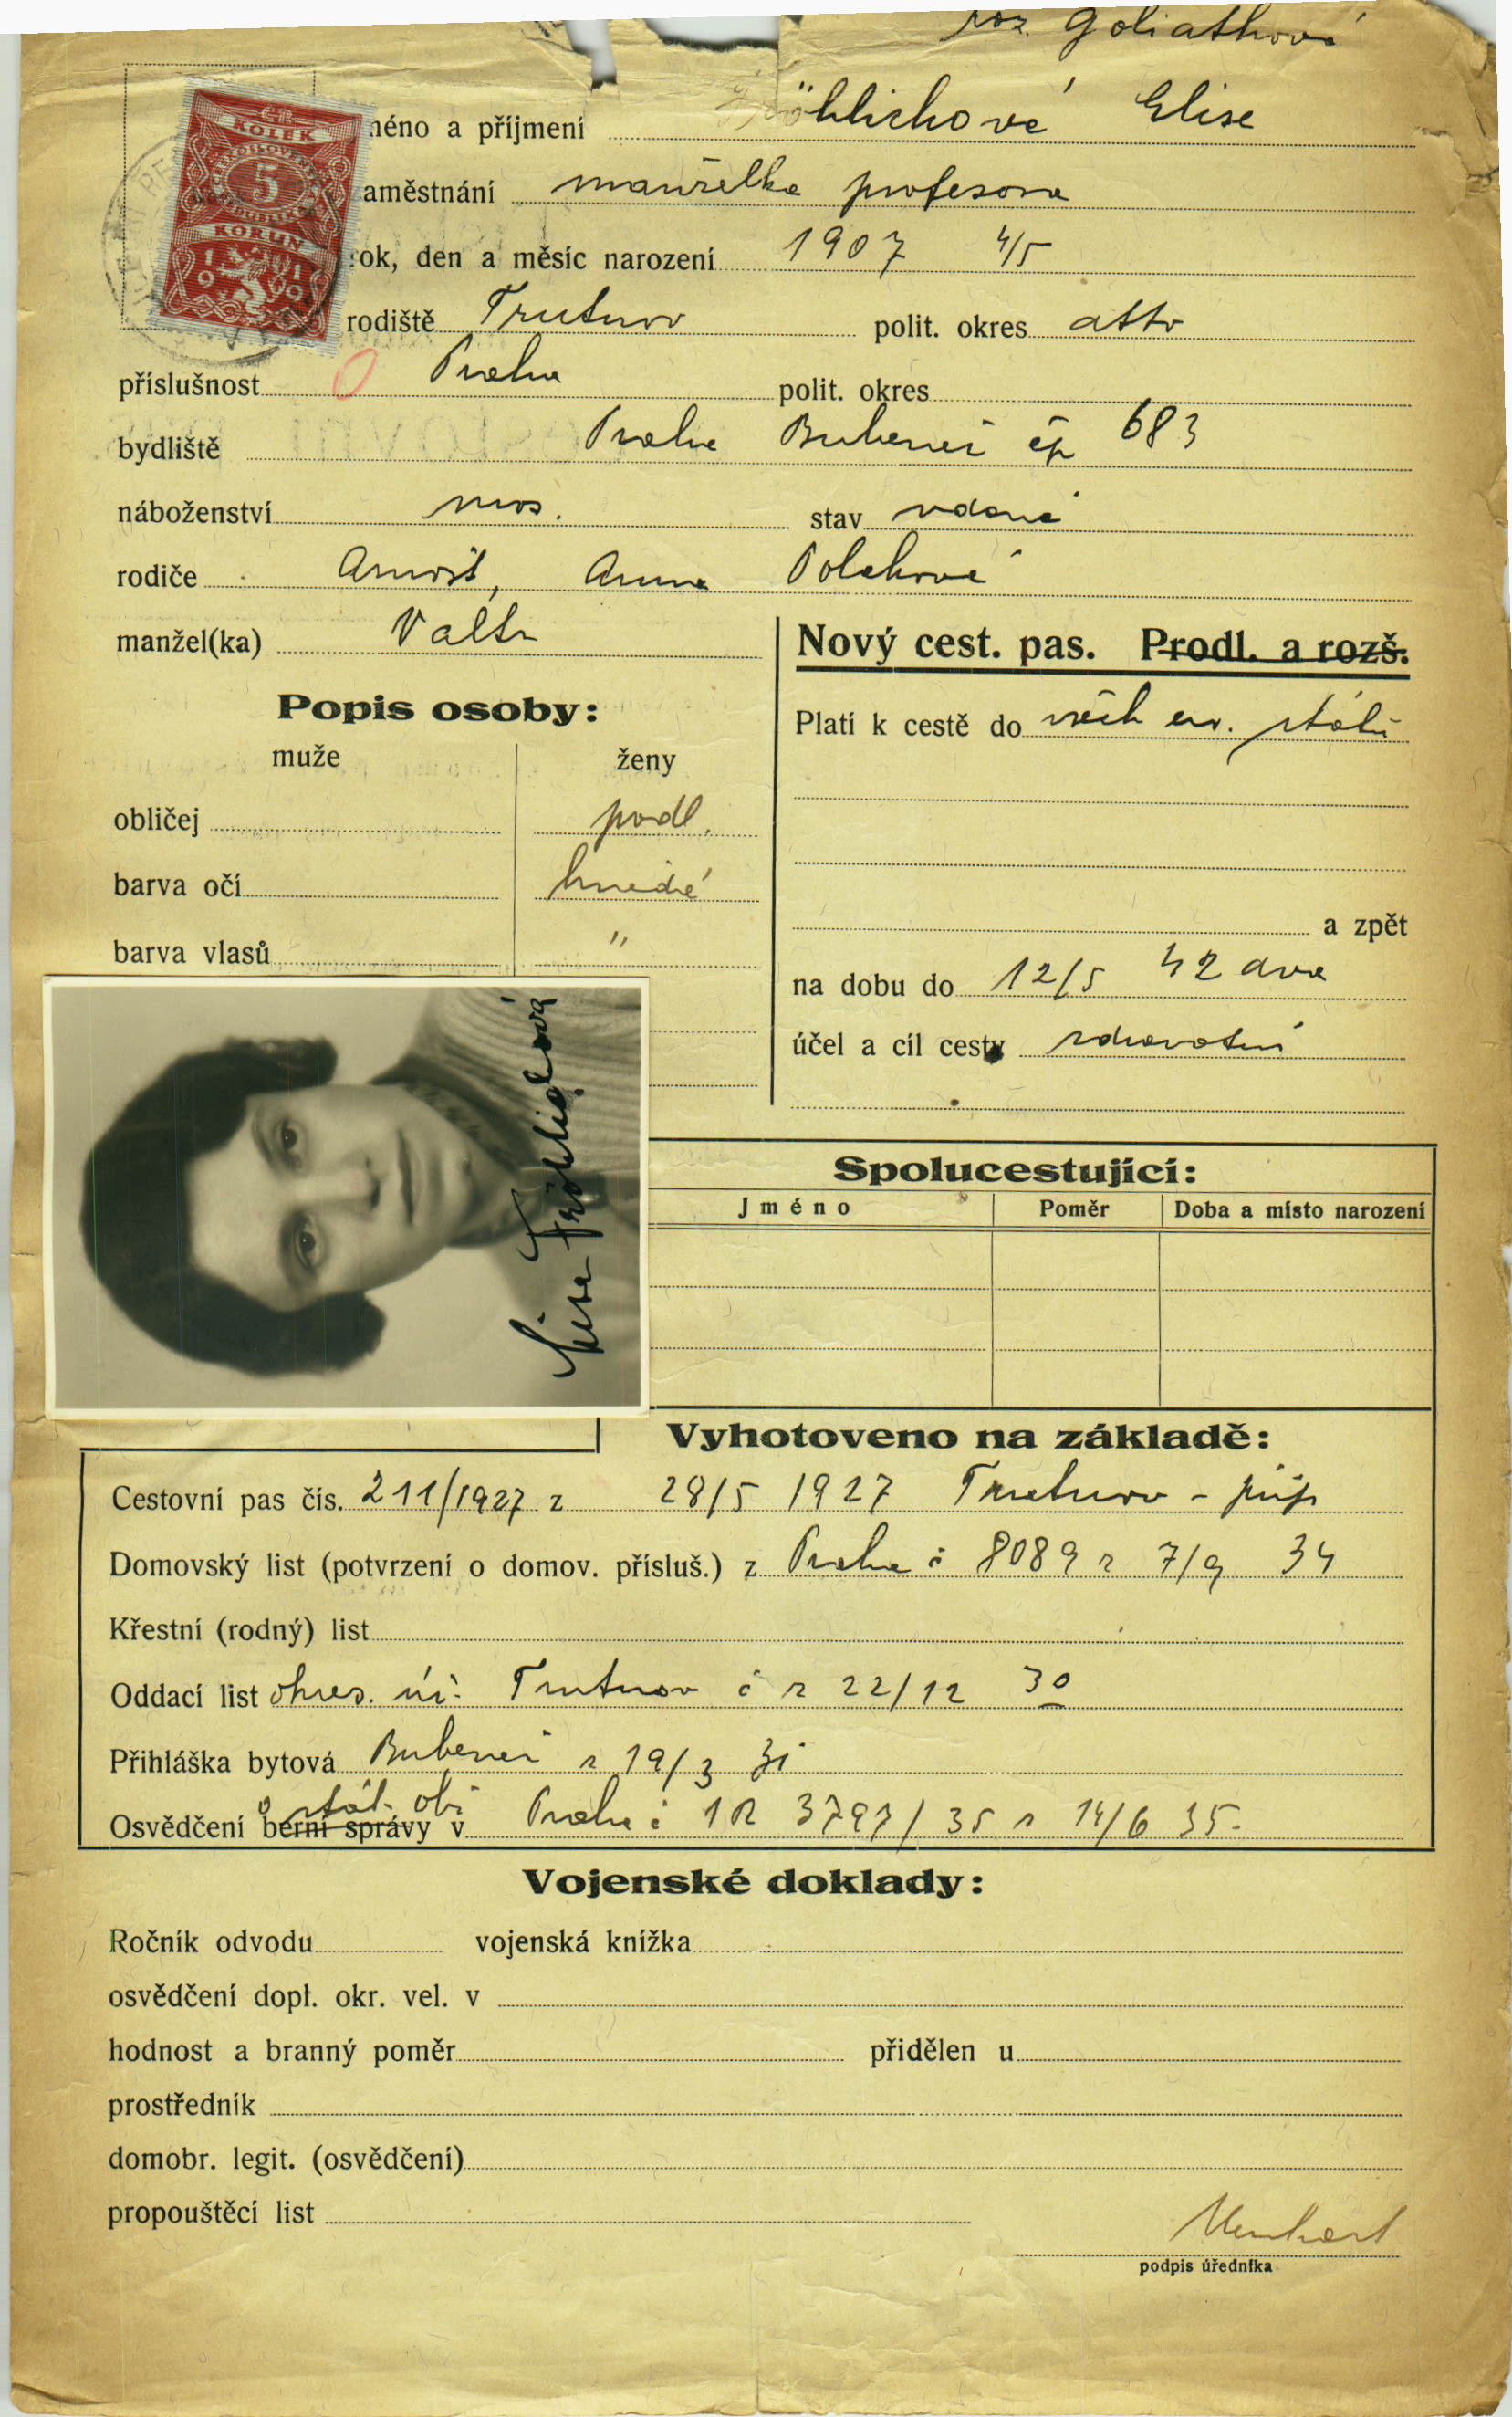 roz. Goliathová
ČS.
KOLEK
5
KORUN
méno a příjmení öhlichová Elise
aměstnání manželka profesora
rok, den a měsíc narození 1907 4/5
rodiště Trutnov polit. okres atto
příslušnost Praha polit. okres
bydliště Praha Bubeneč čp 683
náboženství mos. stav vdaná
rodiče Arnošt, Anna Polaková
manžel(ka) Valtr
Nový cest. pas. Prodl. a rozš.
Popis osoby:
muže ženy
Platí k cestě do všech ev. států
obličej podl.
barva očí hnědé
a zpět
barva vlasů "
na dobu do 12/5 42
účel a cíl cesty zdravotní
Fröhlichová
Spolucestující:
Jméno Poměr Doba a místo narození
Vyhotoveno na základě:
Cestovní pas čís. 211/1927 z 28/5 1927 Trutnov - přip
Domovský list (potvrzení o domov. přísluš.) z Praha č 8089 z 7/9 34
Křestní (rodný) list
Oddací list okres. úř. Trutnov č z 22/12 30
Přihláška bytová Bubeneč z 19/3 31
o stát. obč
Osvědčení berní správy v Praha č 1R 3797/35 z 14/6 35.
Vojenské doklady:
Ročník odvodu vojenská knížka
osvědčení dopl. okr. vel. v
hodnost a branný poměr přidělen u
prostředník
domobr. legit. (osvědčení)
propouštěcí list
podpis úředníka